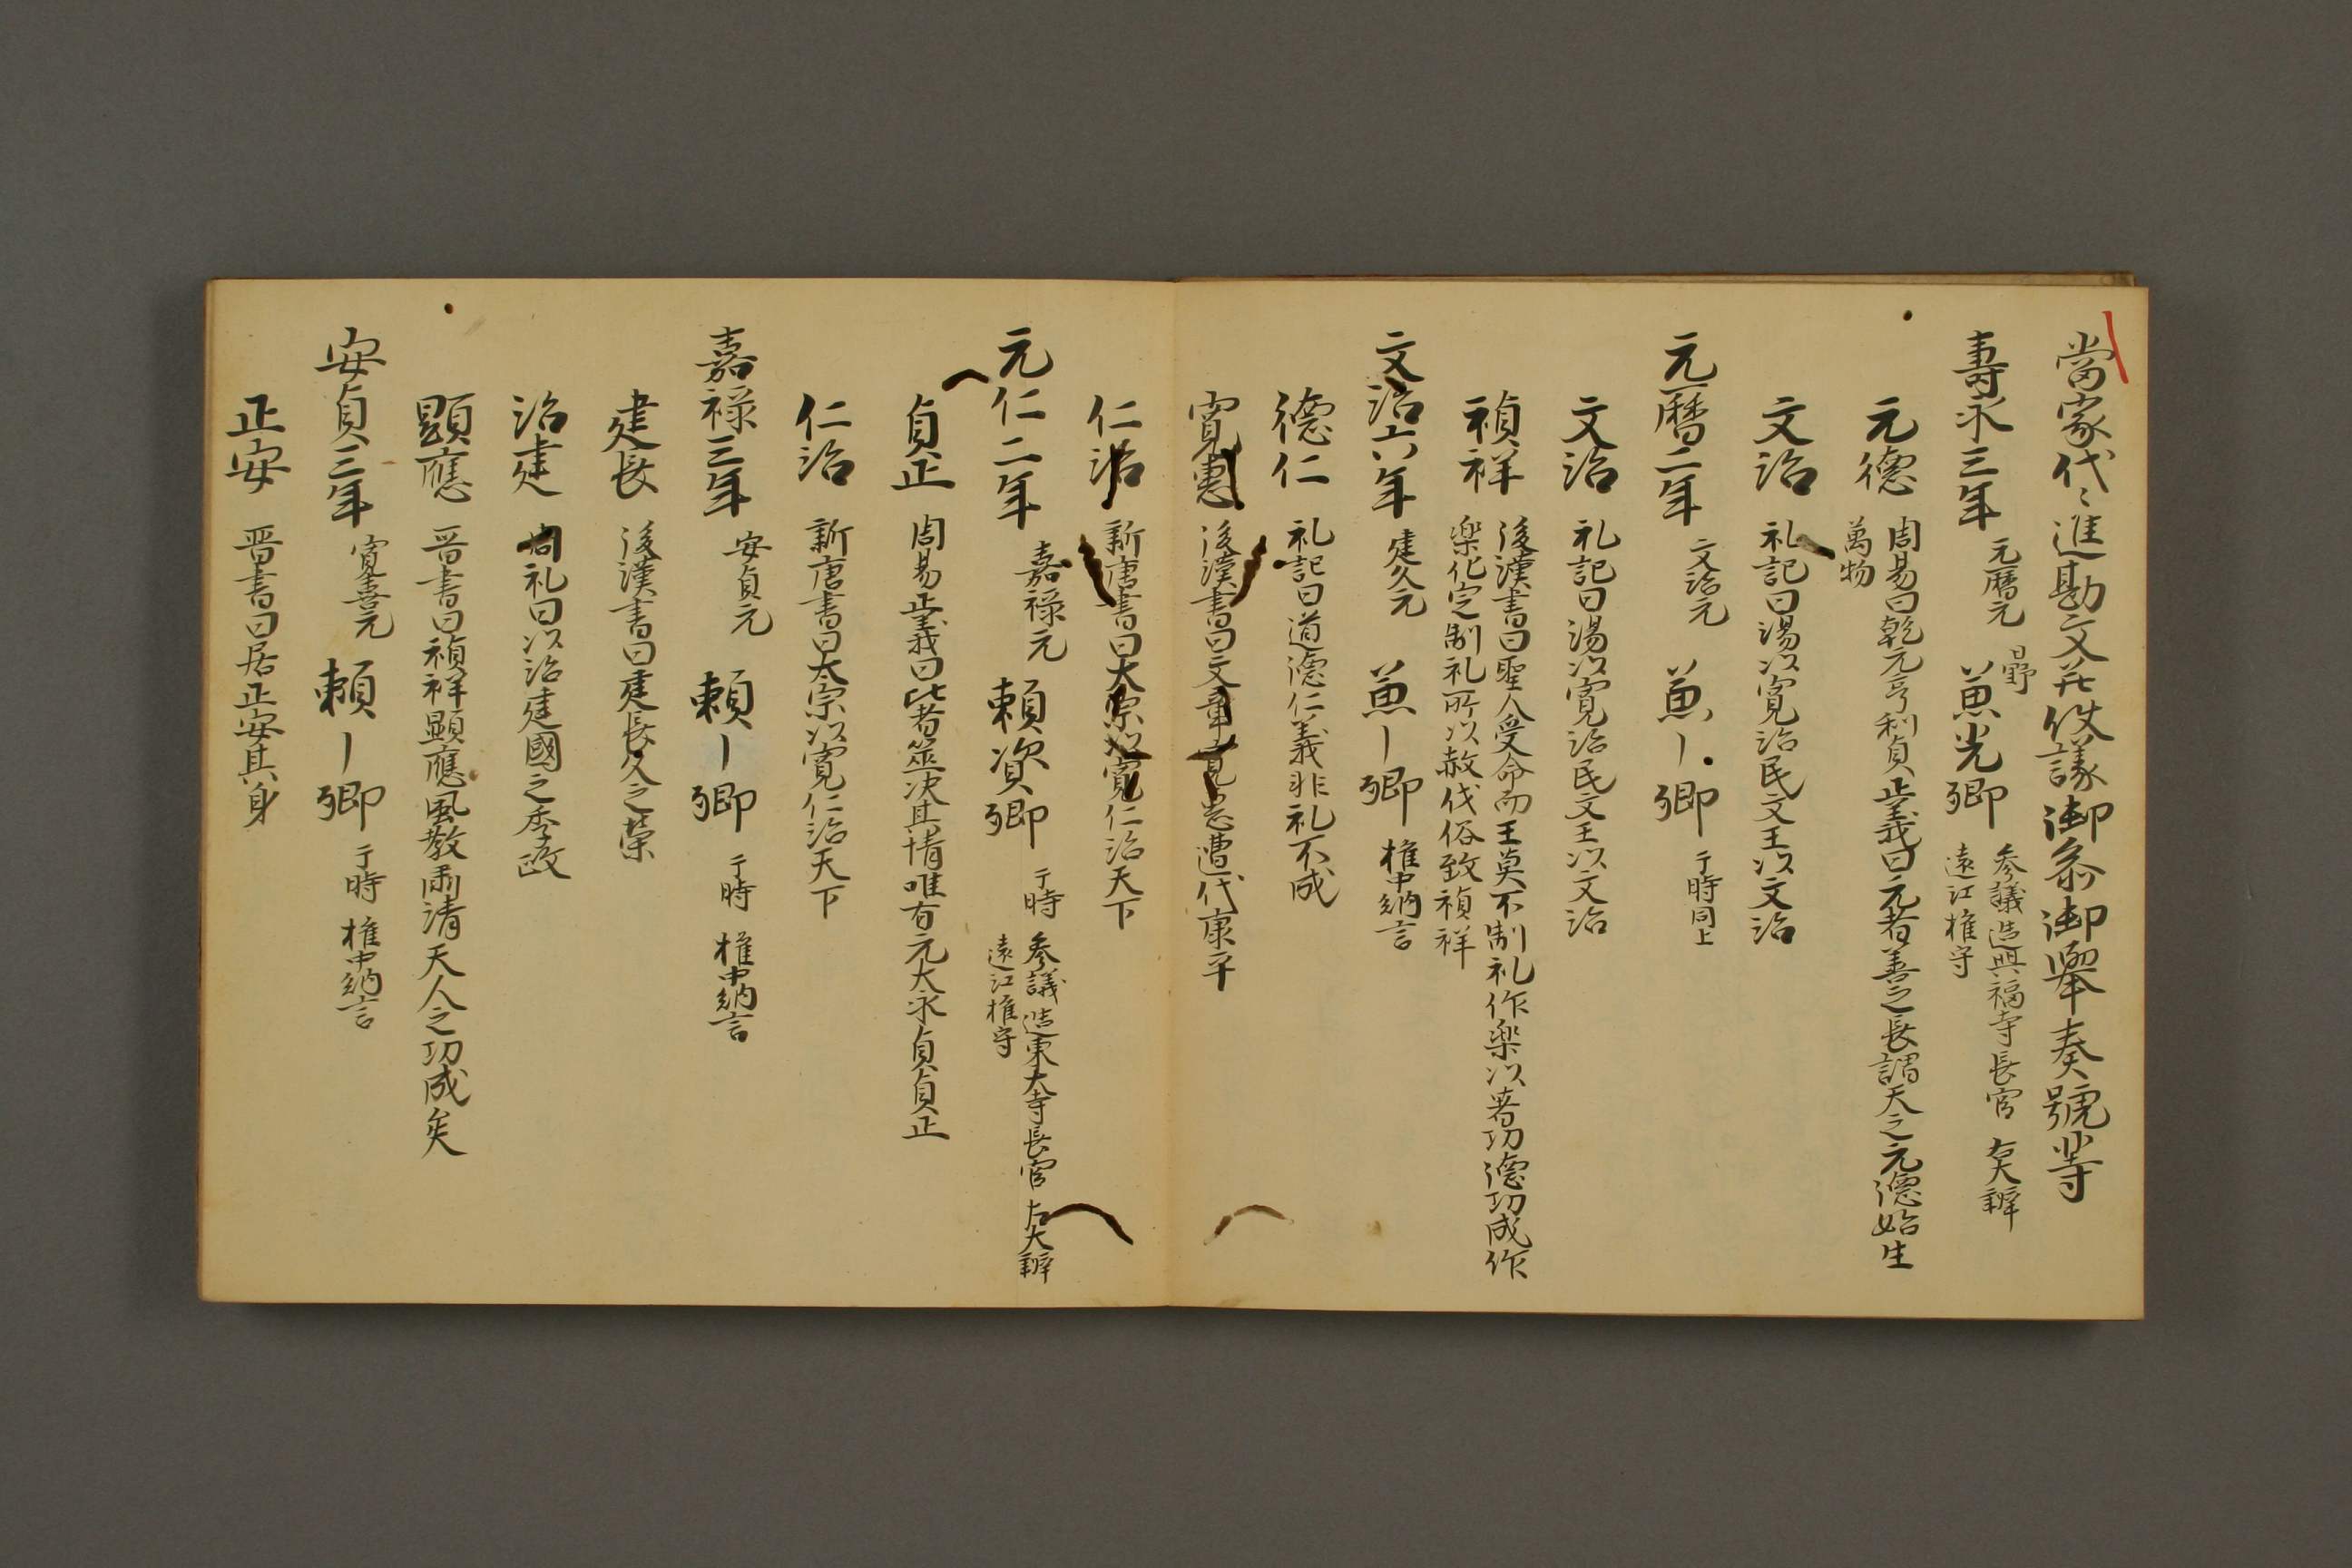 當家代〻進勘文并仗議御参御擧奏號等
壽永三年 元暦元 日野 兼光卿 参議造興福寺長官 右大辨
遠江権守
元德 周易曰乾元亨利貞正義曰元者善之長謂天之元德始生
萬物
文治 礼記曰湯以寛治民文王以文治
元暦二年 文治元 兼ー卿 于時同上
文治 礼記曰湯以寛治民文王以文治
禎祥 後漢書曰聖人受命而王莫不制礼作楽以著功德功成作
楽化定制礼所以救伐俗致禎祥
文治六年 建久元 兼ー卿 権中納言
德仁 礼記曰道德仁義非礼不成
寛恵 後漢書曰文章寛恵遭代康平
仁治 新唐書曰太宗以寛仁治天下
元仁二年 嘉禄元 頼資卿 于時 参議造東大寺長官 右大辨
遠江権守
貞正 周易正義曰此者筮决其情唯有元大永貞貞正
仁治 新唐書曰太宗以寛仁治天下
嘉禄三年 安貞元 頼ー卿 于時 権中納言
建長 後漢書曰建長久之榮
治建 周礼曰以治建國之 政
顕應 晋書曰禎祥顕應風教肅清天人之功成矣
安貞三年 寛喜元 頼ー卿 于時 権中納言
正安 晋書曰居正安其身